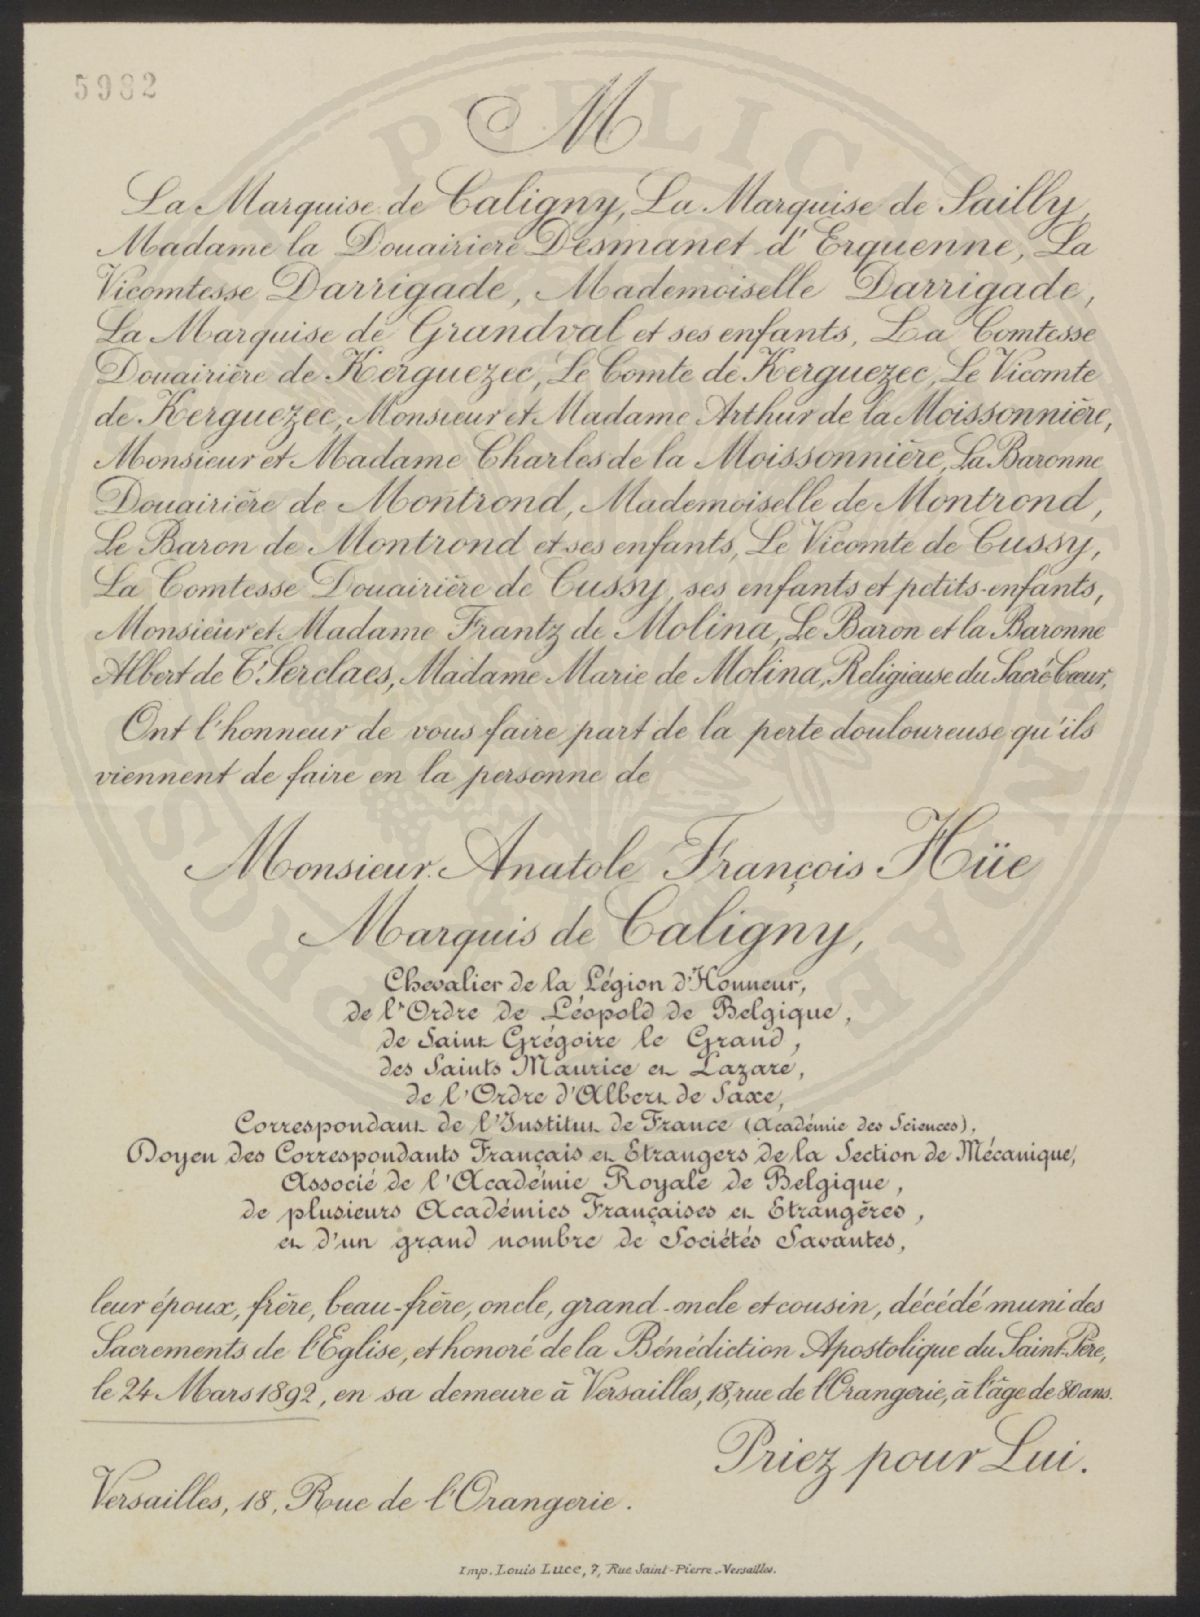 5982
M
La Marquise de Caligny, La Marquise de Sailly,
Madame la Douairière Desmanet d'Erquenne, La
Vicomtesse Darrigade, Mademoiselle Darrigade,
La Marquise de Grandval et ses enfants, La Comtesse
Douairière de Kerguezec, Le Comte de Kerguezec, Le Vicomte
de Kerguezec, Monsieur et Madame Arthur de la Moissonnière,
Monsieur et Madame Charles de la Moissonnière, La Baronne
Douairière de Montrond, Mademoiselle de Montrond,
Le Baron de Montrond et ses enfants, Le Vicomte de Cussy,
La Comtesse Douairière de Cussy, ses enfants et petits-enfants,
Monsieur et Madame Frantz de Molina, Le Baron et la Baronne
Albert de T'Serclaes, Madame Marie de Molina, Religieuse du Sacré Cœur,
Ont l'honneur de vous faire part de la perte douloureuse qu'ils
viennent de faire en la personne de
Monsieur Anatole François Hüe
Marquis de Caligny,
Chevalier de la Légion d'Honneur,
de l'Ordre de Léopold de Belgique,
de Saint Grégoire le Grand,
des Saints Maurice et Lazare,
de l'Ordre d'Albert de Saxe,
Correspondant de l'Institut de France (Académie des Sciences),
Doyen des Correspondants Français et Etrangers de la Section de Mécanique,
Associé de l'Académie Royale de Belgique,
de plusieurs Académies Françaises et Etrangères,
et d'un grand nombre de Sociétés Savantes,
leur époux, frère, beau-frère, oncle, grand-oncle et cousin, décédé muni des
Sacrements de l'Eglise, et honoré de la Bénédiction Apostolique du Saint-Père,
le 24 Mars 1892, en sa demeure à Versailles, 18, rue de l'Orangerie, à l'âge de 80 ans.
Priez pour Lui.
Versailles, 18, Rue de l'Orangerie.
Imp. Louis Luce, 7, Rue Saint-Pierre - Versailles.